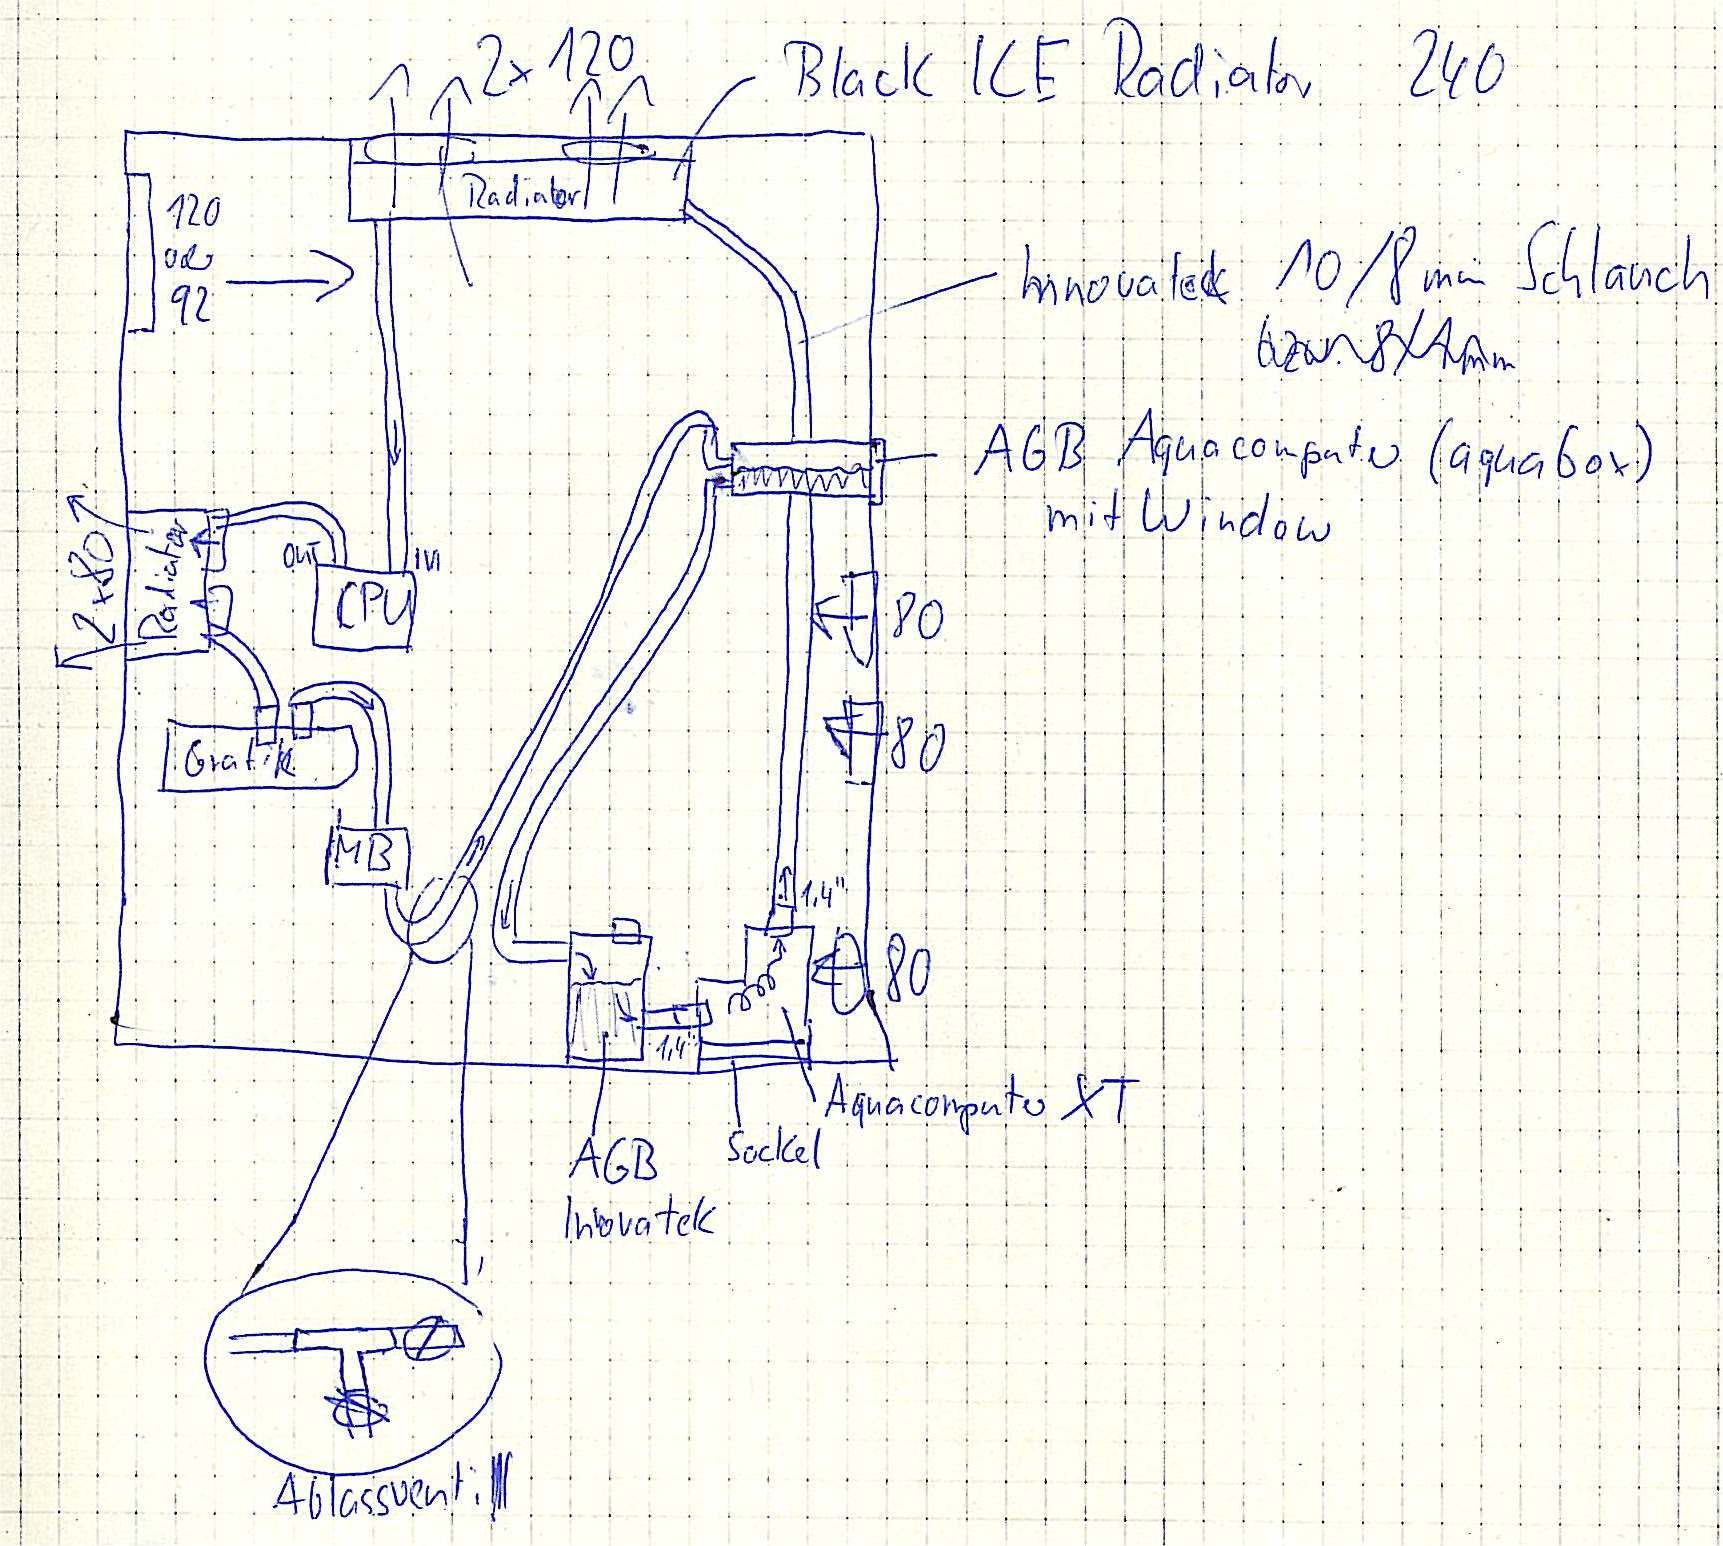 2x 120
Black ICE Radiator 240
Radiator
120
oder
92
Innovatek 10/8mm Schlauch
bzw. 8/
AGB Aquacomputer (aquabox)
mit Window
2x80
Radiator
OUT
IN
CPU
80
80
Grafik
MB
1,4"
80
1,4"
Aquacomputer XT
Sockel
AGB
Inovatek
Ablassventil